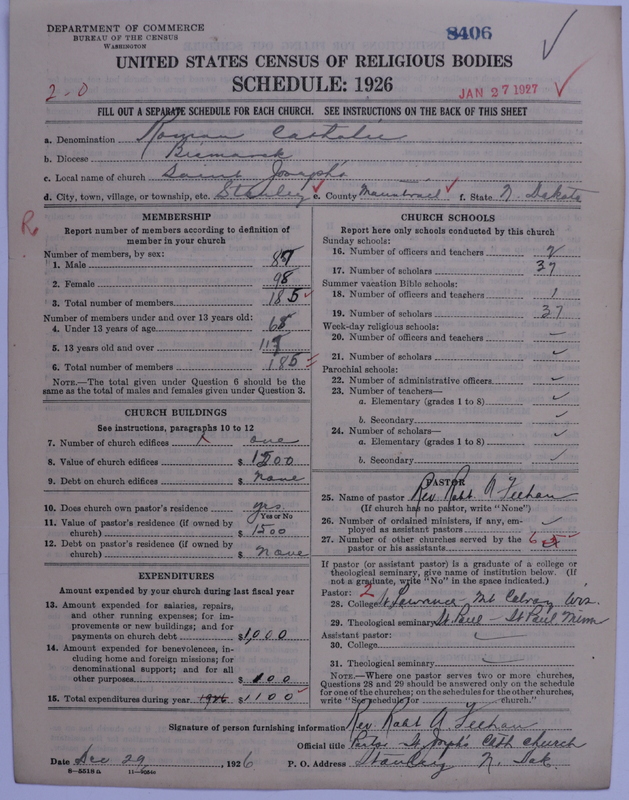 DEPARTMENT OF COMMERCE
BUREAU OF THE CENSUS
WASHINGTON
8406
UNITED STATES CENSUS OF RELIGIOUS BODIES
SCHEDULE: 1926
2-0
JAN 27 1927
FILL OUT A SEPARATE SCHEDULE FOR EACH CHURCH. SEE INSTRUCTIONS ON THE BACK OF THIS SHEET
a. Denomination Roman Catholic
b. Diocese Bismarck
c. Local name of church Saint Joseph's
d. City, town, village, or township, etc. Stanley e. County Mountrail f. State N. Dakota
R
MEMBERSHIP
Report number of members according to definition of
member in your church
Number of members, by sex:
1. Male 87
2. Female 98
3. Total number of members 185
Number of members under and over 13 years old:
4. Under 13 years of age 68
5. 13 years old and over 117
6. Total number of members 185
NOTE.—The total given under Question 6 should be the
same as the total of males and females given under Question 3.
CHURCH BUILDINGS
See instructions, paragraphs 10 to 12
7. Number of church edifices one
8. Value of church edifices $ 1500
9. Debt on church edifices $ none
10. Does church own pastor's residence yes
Yes or No
11. Value of pastor's residence (if owned by
church) $ 1500
12. Debt on pastor's residence (if owned by
church) $ none
EXPENDITURES
Amount expended by your church during last fiscal year
13. Amount expended for salaries, repairs,
and other running expenses; for im-
provements or new buildings; and for
payments on church debt $ 1,000
14. Amount expended for benevolences, in-
cluding home and foreign missions; for
denominational support; and for all
other purposes $ 100
15. Total expenditures during year 1926 $ 1100
CHURCH SCHOOLS
Report here only schools conducted by this church
Sunday schools:
16. Number of officers and teachers 2
17. Number of scholars 37
Summer vacation Bible schools:
18. Number of officers and teachers 1
19. Number of scholars 37
Week-day religious schools:
20. Number of officers and teachers
21. Number of scholars
Parochial schools:
22. Number of administrative officers
23. Number of teachers—
a. Elementary (grades 1 to 8)
b. Secondary
24. Number of scholars—
a. Elementary (grades 1 to 8)
b. Secondary
PASTOR
25. Name of pastor Rev. Robt A Feehan
(If church has no pastor, write "None")
26. Number of ordained ministers, if any, em-
ployed as assistant pastors
27. Number of other churches served by the
pastor or his assistants 6
If pastor (or assistant pastor) is a graduate of a college or
theological seminary, give name of institution below. (If
not a graduate, write "No" in the space indicated.)
Pastor: 2
28. College St Lawrence - Mt Calvary Wis.
29. Theological seminary St Paul - St Paul Minn
Assistant pastor:
30. College
31. Theological seminary
NOTE.—Where one pastor serves two or more churches,
Questions 28 and 29 should be answered only on the schedule
for one of the churches; on the schedules for the other churches,
write "See schedule for church."
Signature of person furnishing information Rev. Robt A Feehan
Official title Pastor St Joseph's Cath Church
Date Dec 29, 1926 P. O. Address Stanley N. Dak.
8—5518a